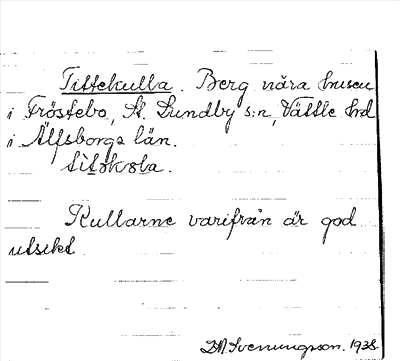 Tittekulla. Berg nära husen
i Fröstebo, St. Lundby s:n, Vättle hd
i Älfsborgs län.
Kullarne varifrån är god
utsikt
Svenungsson. 1938.